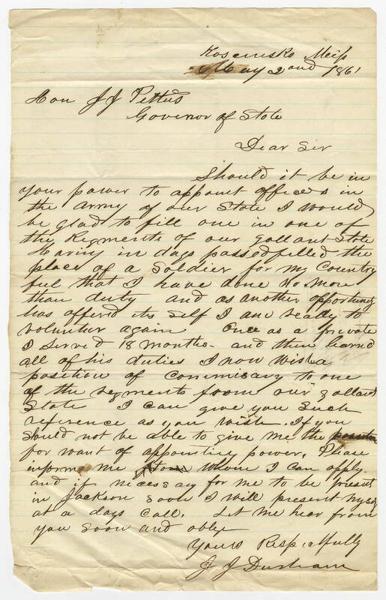 Kosciusko Miss
May 2nd 1861
Hon J J Pettus
Govenor of State
Dear Sir
Should it be in
your power to appoint officers in
the army of our State I would
be glad to fill one in one of
the Regments of our gallant State
having in days passed filled the
place of a Soldier for my Country
feel that I have done no more
than duty and as another opportunity
has offerd its Self I am ready to
volunteer again Once as a private
I Served 18 months and then learned
all of his duties I now wish a
position of Commisary to one
of the regments from our gallant
State I can give you Such
reference as you wish. If you
Should not be able to give me the position
for want of appointing power, Please
inform me whom I can apply
and if necessay for me to be present
in Jackson soon I will present myself
at a days call. Let me hear from
you soon and oblige
Yours Respectfully
J J Durham